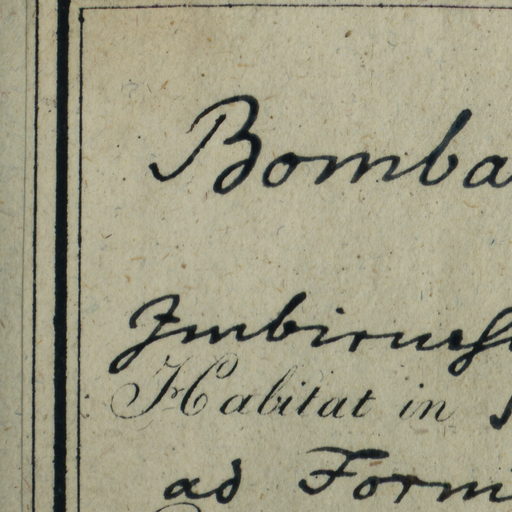 Bomba
Imbirussu
Habitat in
ad Formi